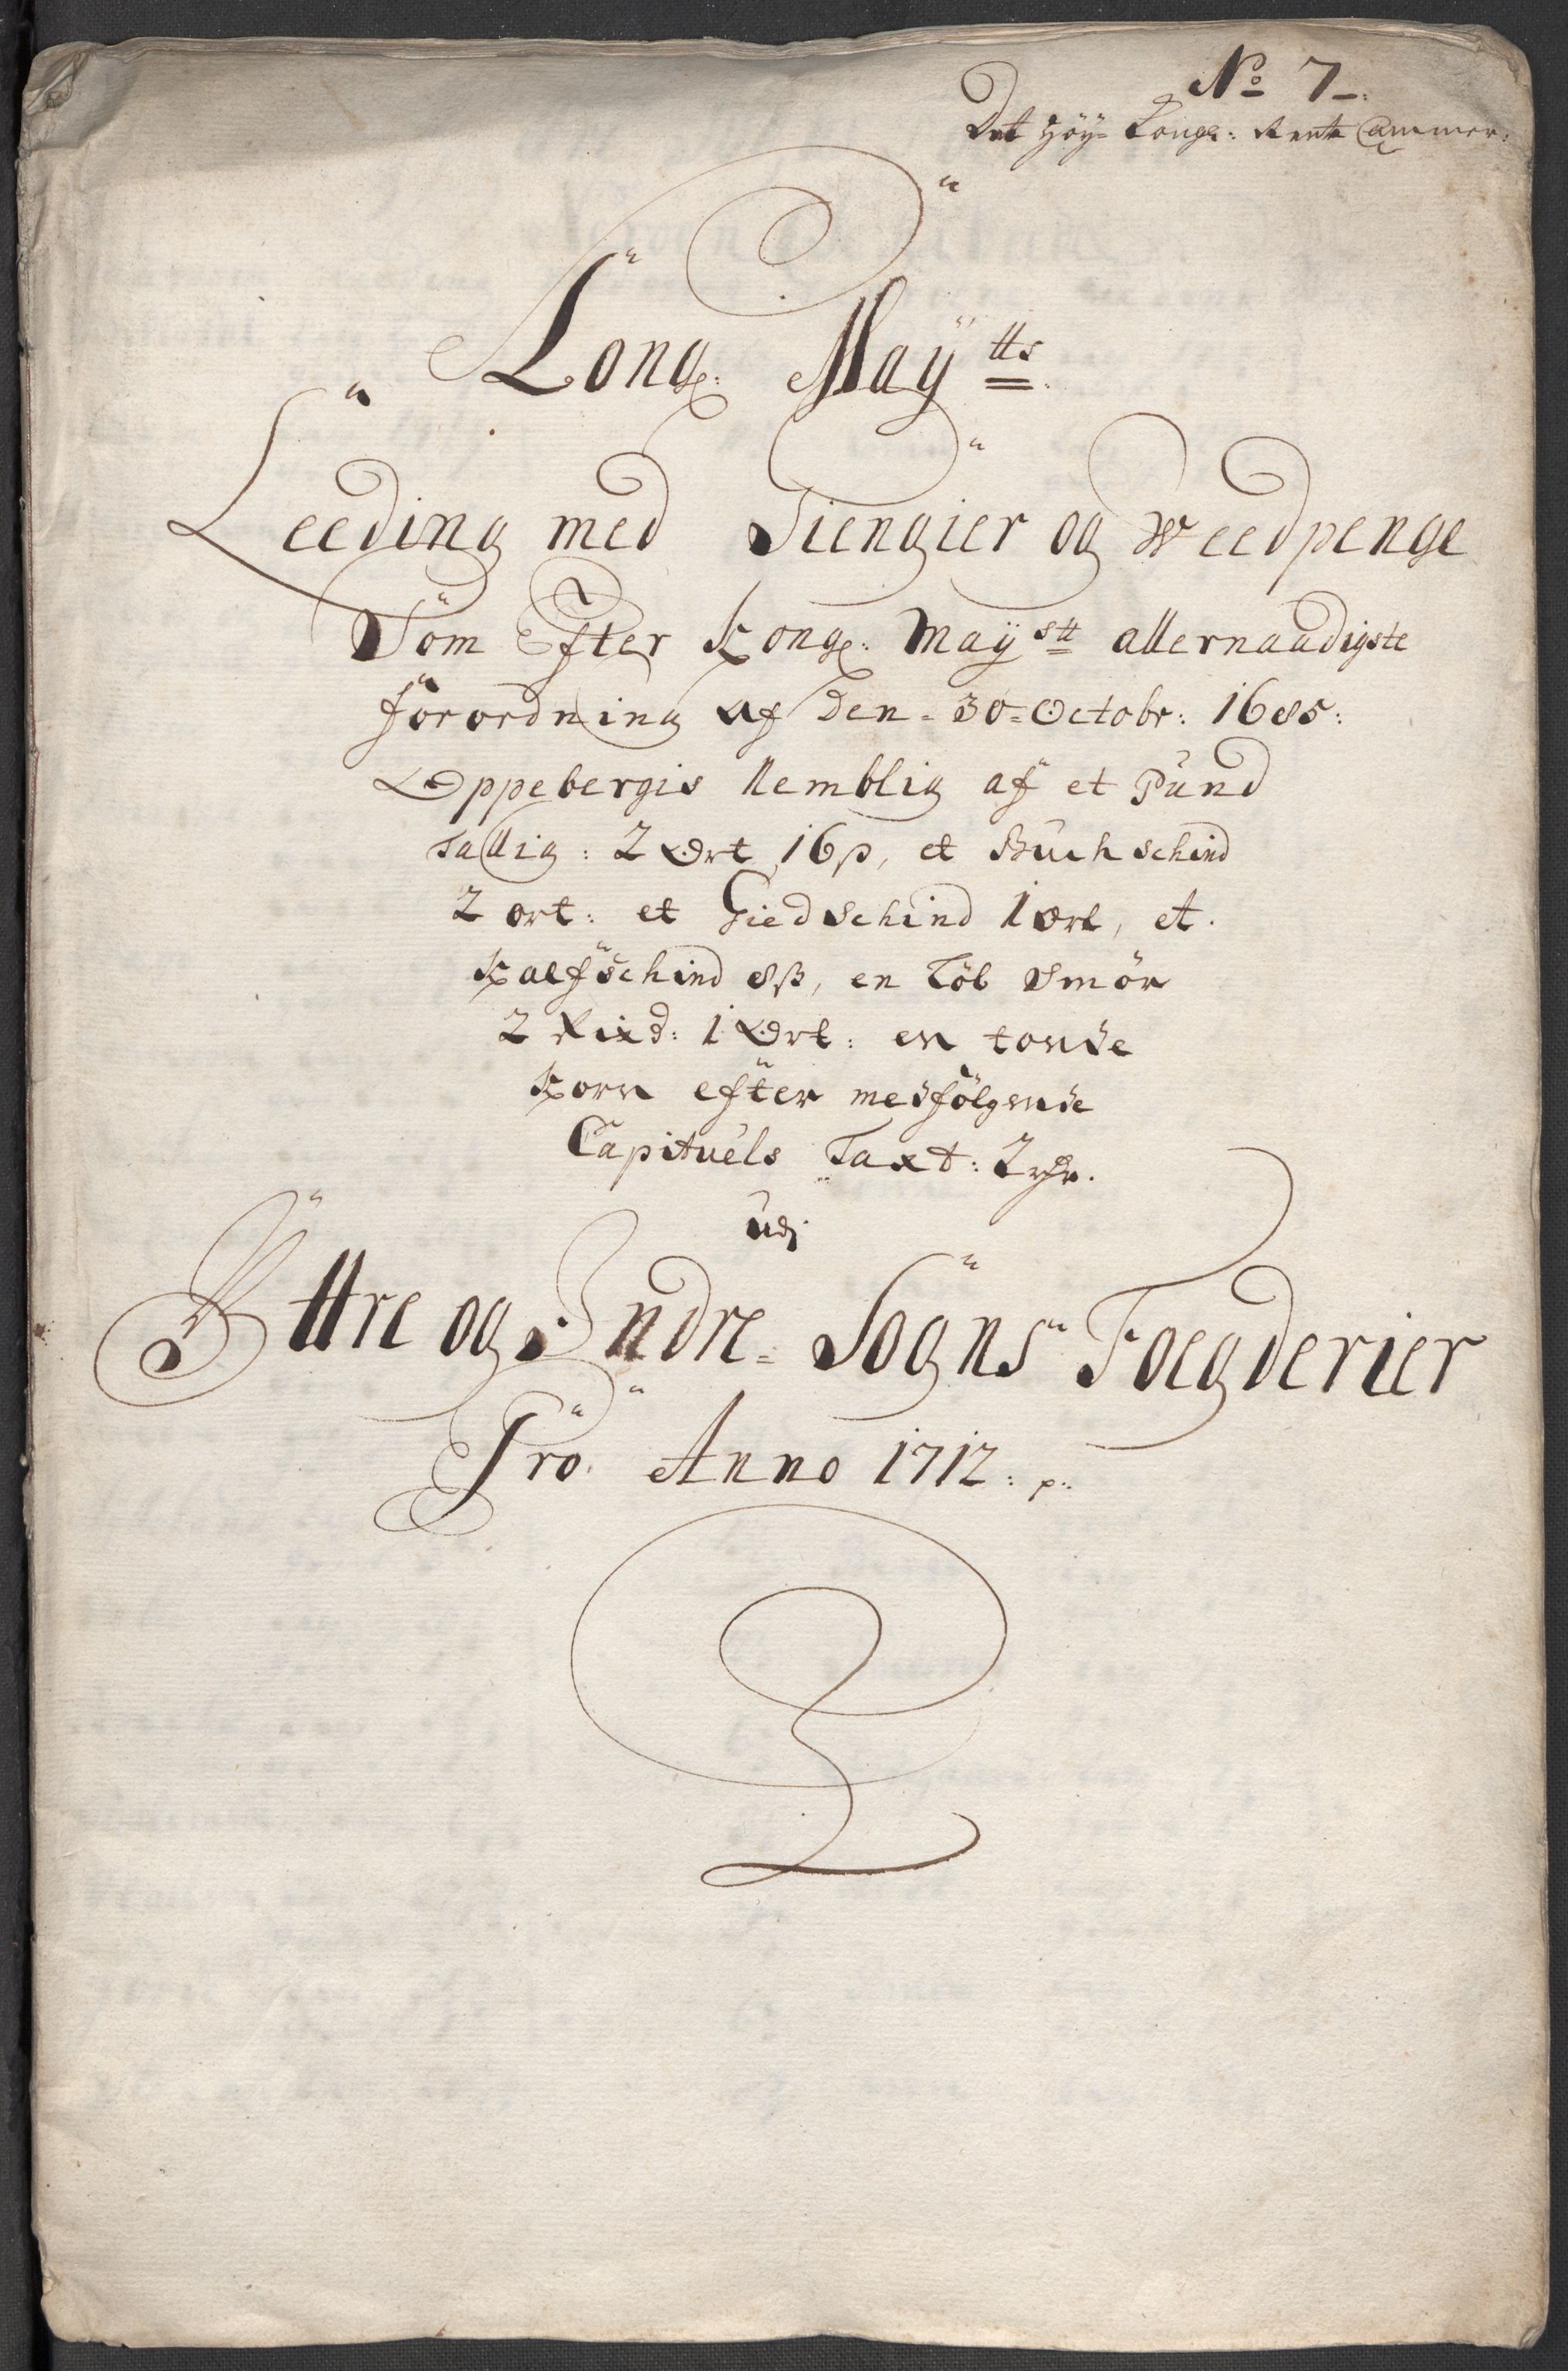 No 7
Det Höy Kongl: Rente Cammer:
Kongl: Maytts
Leeding med Tiengier og Weedpenge
Som Efter Kongl: Maystt allernaadigste
forordning af Den = 30 = Octobr: 1685:
Oppebergis Nemblig af et Pund
Tallig: 2 Ort 16 s, et Buch schind
2 ort: et Giedschind 1 ort, et
Kalfschind 8 ß, en Löb Smör
2 Rixd: 1 Ort: en tonde
Korn efter medfölgende
Capituels Taxt: 2 rdr.
udj
Yttre og Indre = Sogns Foegderier
Pro Anno 1712: p: